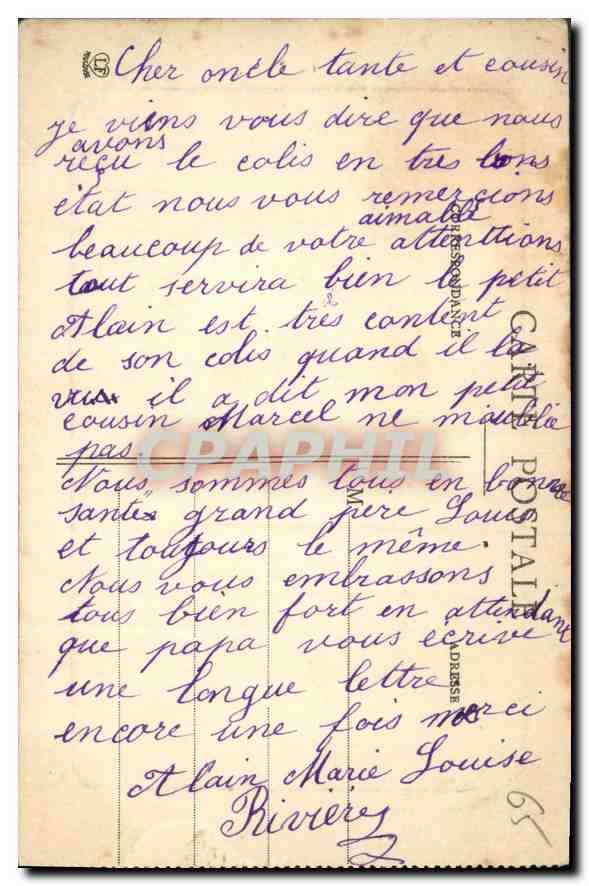 Cher oncle tante et cousin
je viens vous dire que nous
avons
reçu le colis en très bons
état nous vous remercions
aimable
beaucoup de votre attenttions
tout servira bien le petit
Alain est très content
de son colis quand il la
vu il a dit mon petit
cousin Marcel ne m'oublie
pas.
Nous sommes tous en bonne
santé grand père Louis
et toujours le même
Nous vous embrassons
tous bien fort en attendant
que papa vous écrive
une longue lettre
encore une fois merci
Alain Marie Louise
Rivières
CARTE POSTALE
CORRESPONDANCE
ADRESSE
M
65
CPAPHIL